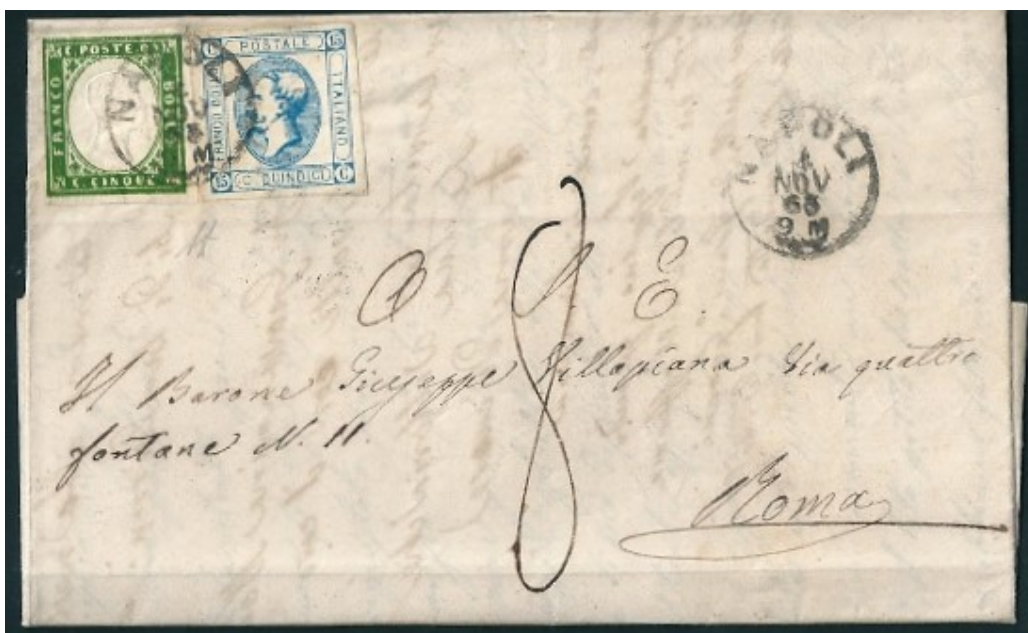 C. POSTE
FRANCO
BOLLO
C. CINQUE
C POSTALE 15
FRANCO BOLLO
ITALIANO
15 C QUINDICI C
NAPOLI
4
NOV
63
9 M
A S. E.
8
Il Barone Giuseppe Villapiana Via quattro
fontane N. 11.
Roma